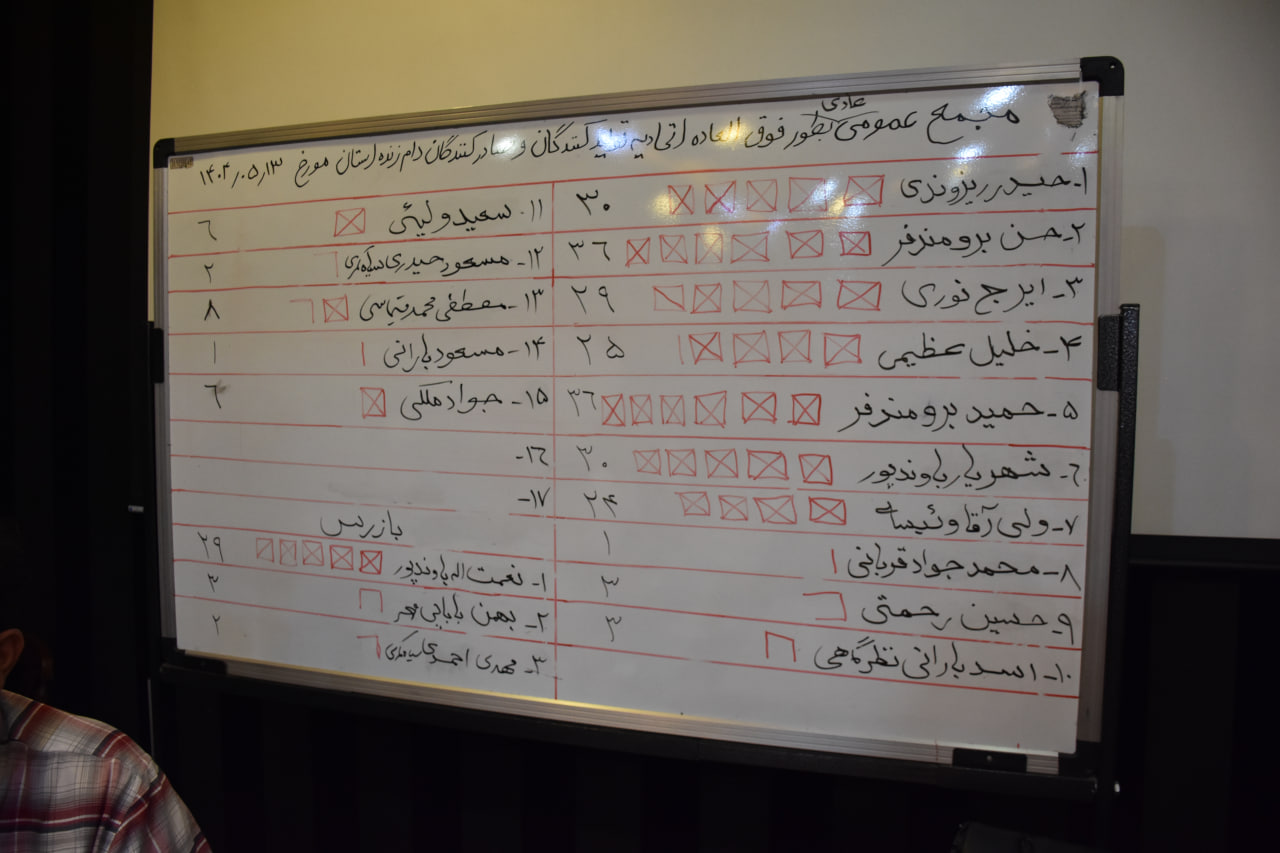 عادی
مجمع عمومی بطور فوق العاده اتحادیه تولید کنندگان و صادر کنندگان دام زنده استان مورخ ۱۴۰۴٫۰۵٫۱۳
۱- حیدر ریزوندی ۳۰
۲- حسن برومندفر ۳۶
۳- ایرج نوری ۲۹
۴- خلیل عظیمی ۲۵
۵- حمید برومندفر ۳۶
۶- شهریار باوندپور ۳۰
۷- ولی آقا ۲۴
۸- محمدجواد قربانی ۱
۹- حسین رحمتی ۳
۱۰- اسد بارانی نظرگاهی ۳
۱۱- سعید ولیئی ۶
۱۲- مسعود حیدری ۲
۱۳- مصطفی محمد ۸
۱۴- مسعود بارانی ۱
۱۵- جواد ملکی ۶
۱۶-
۱۷-
بازرس
۱- نعمت اله باوندپور ۲۹
۲- بهمن بابایی ۳
۳- مهدی احمدی ۲